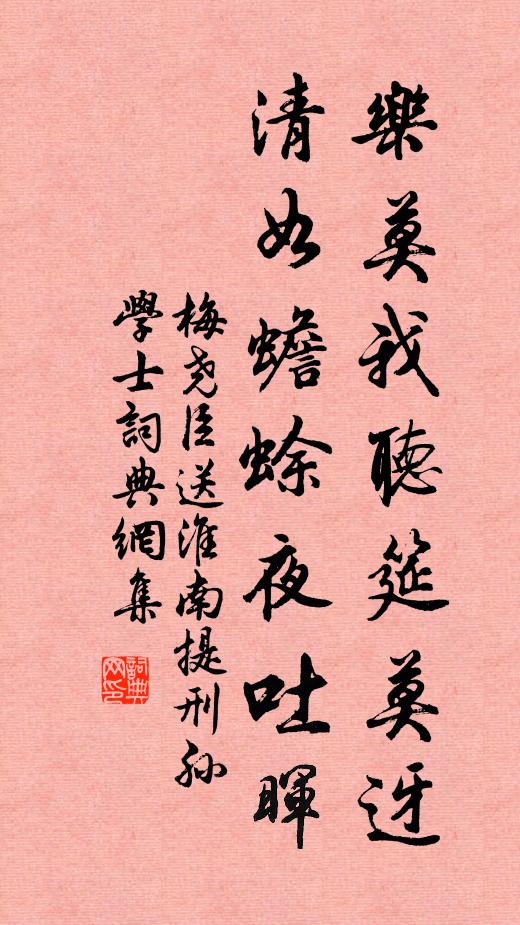 樂莫我聽筵莫迓
清如蟾蜍夜吐暉
梅堯臣送淮南提刑孫
學士詞典網集
詞典網印